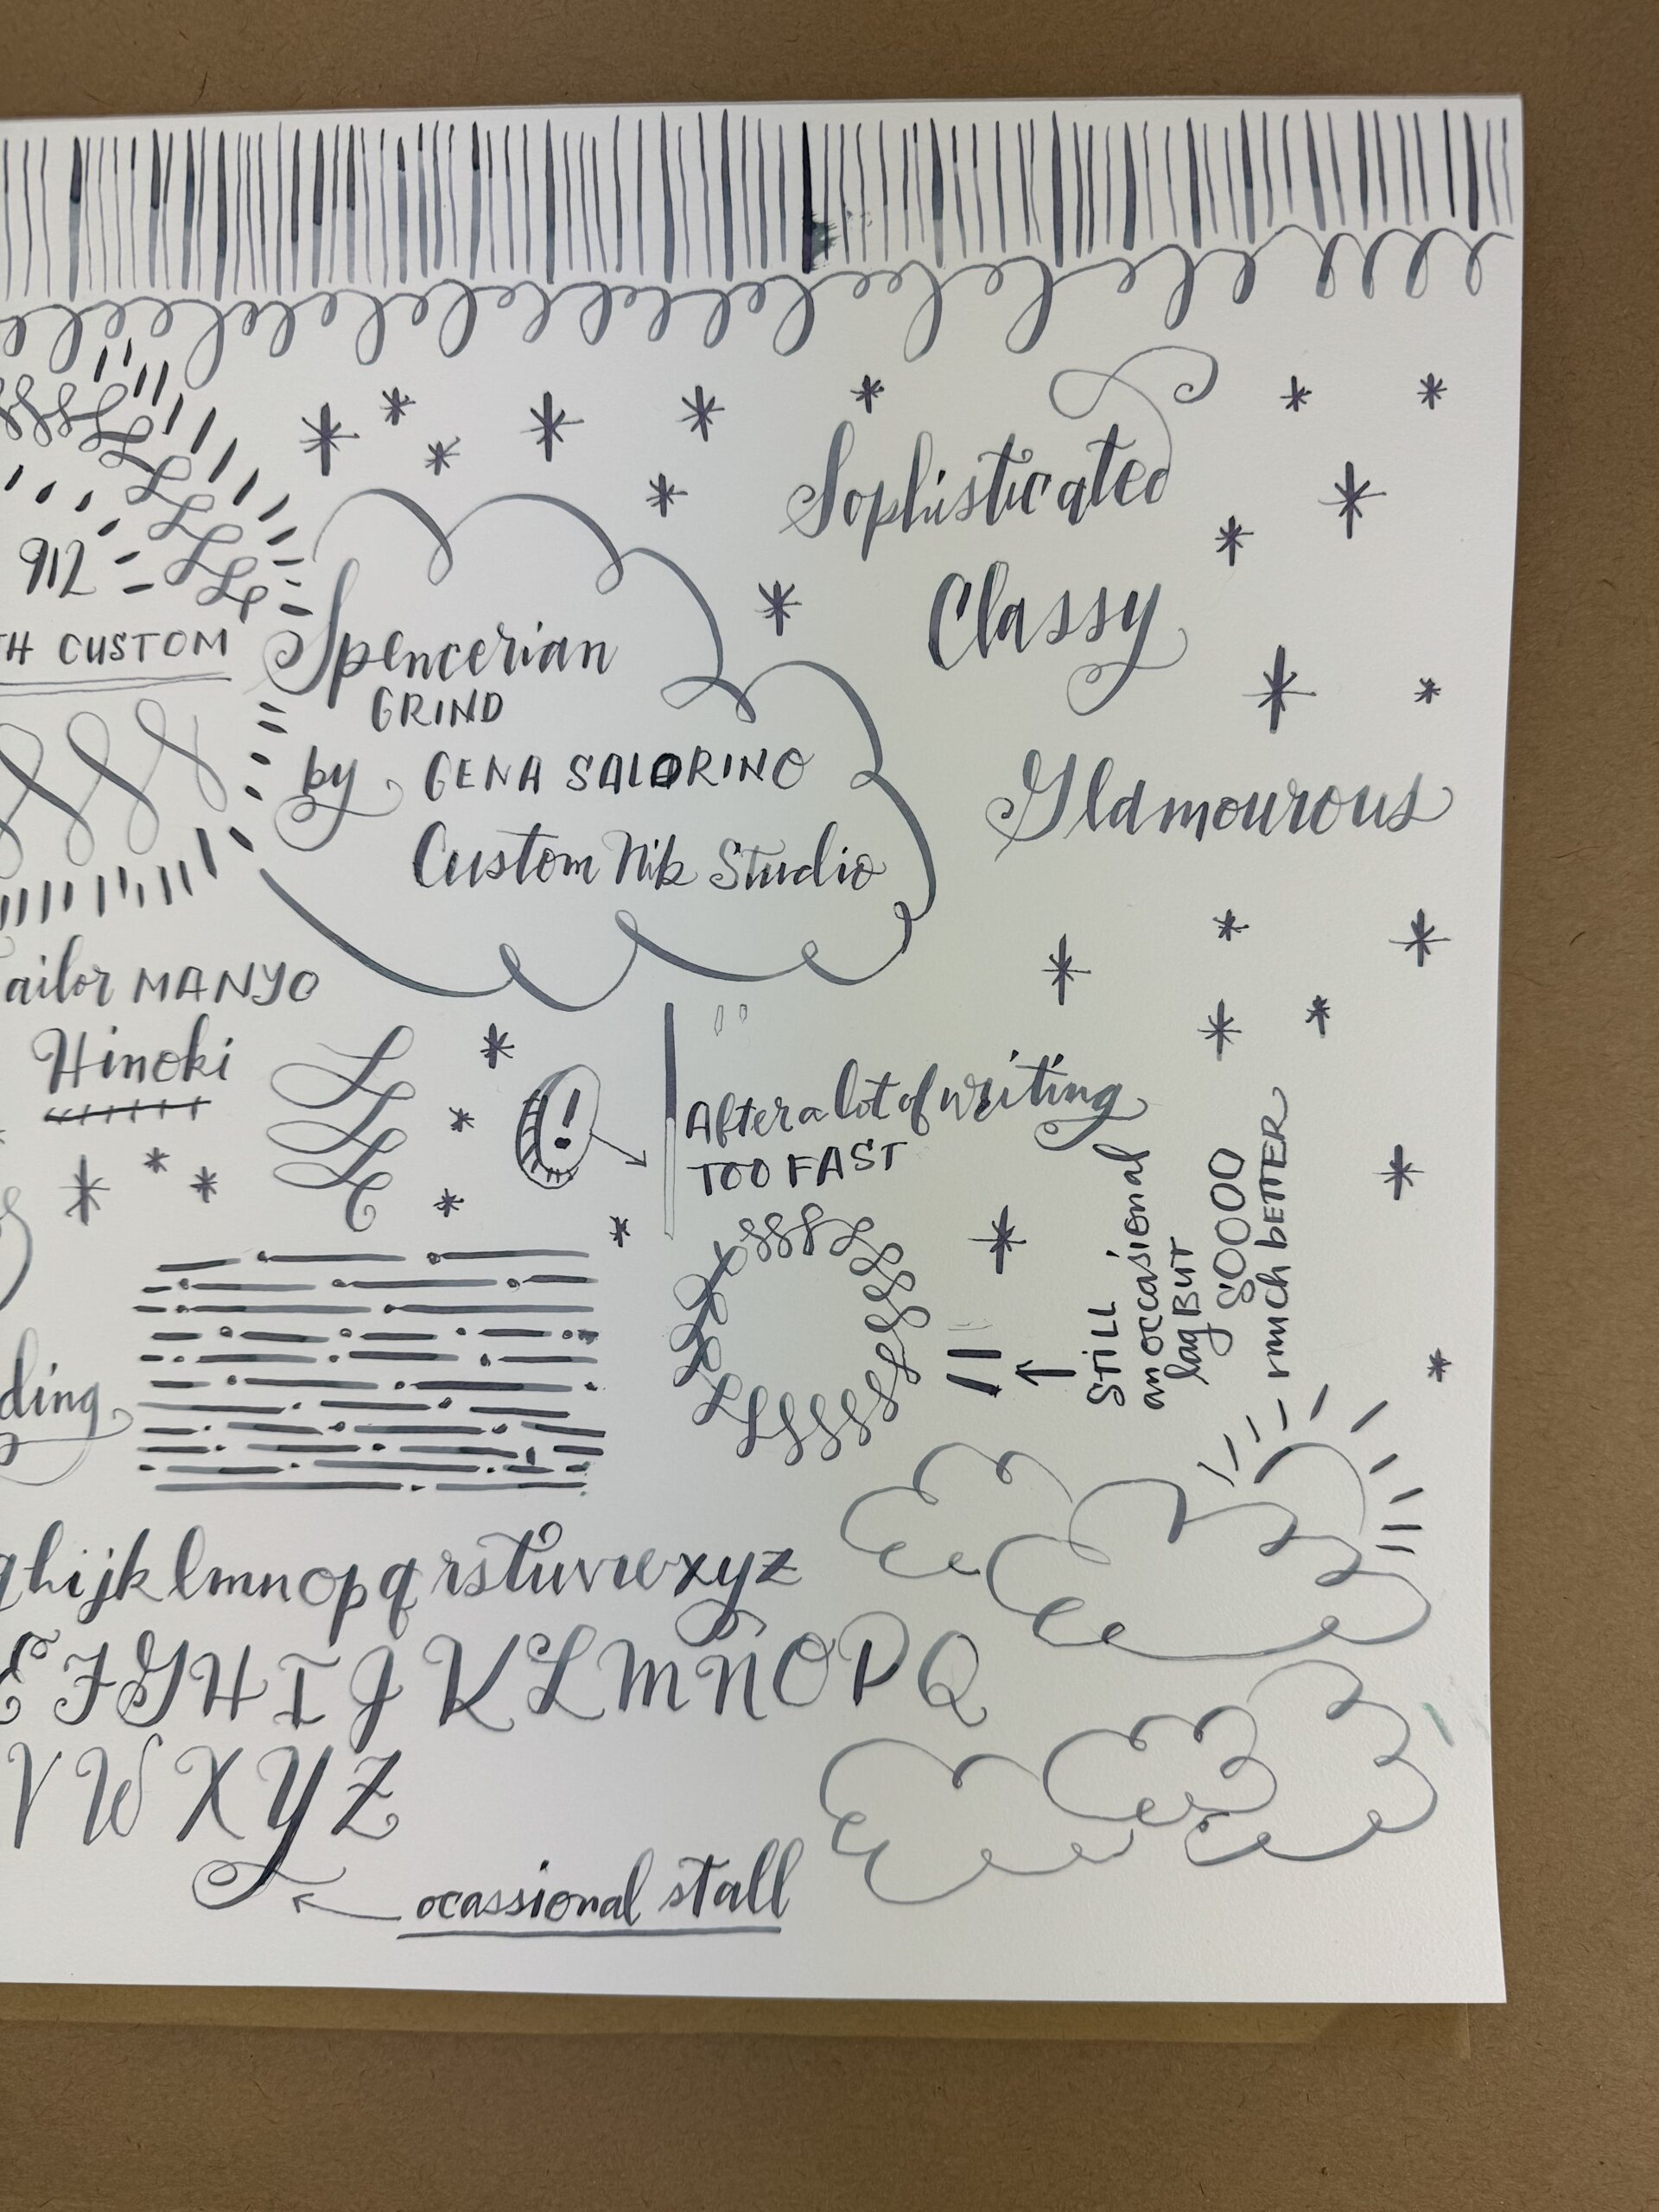 Sophisticated
Classy
Glamourous
912
TH CUSTOM
Spencerian
GRIND
by GENA SALORINO
Custom Nib Studio
ailor MANYO
Hinoki
!
After a lot of writing
TOO FAST
STILL
an occasional
lag BUT
SOOOO
much bETTER
ding
ghijklmnopqrstuvwxyz
E F G H I J K L M N O P Q
V W X Y Z
ocassional stall